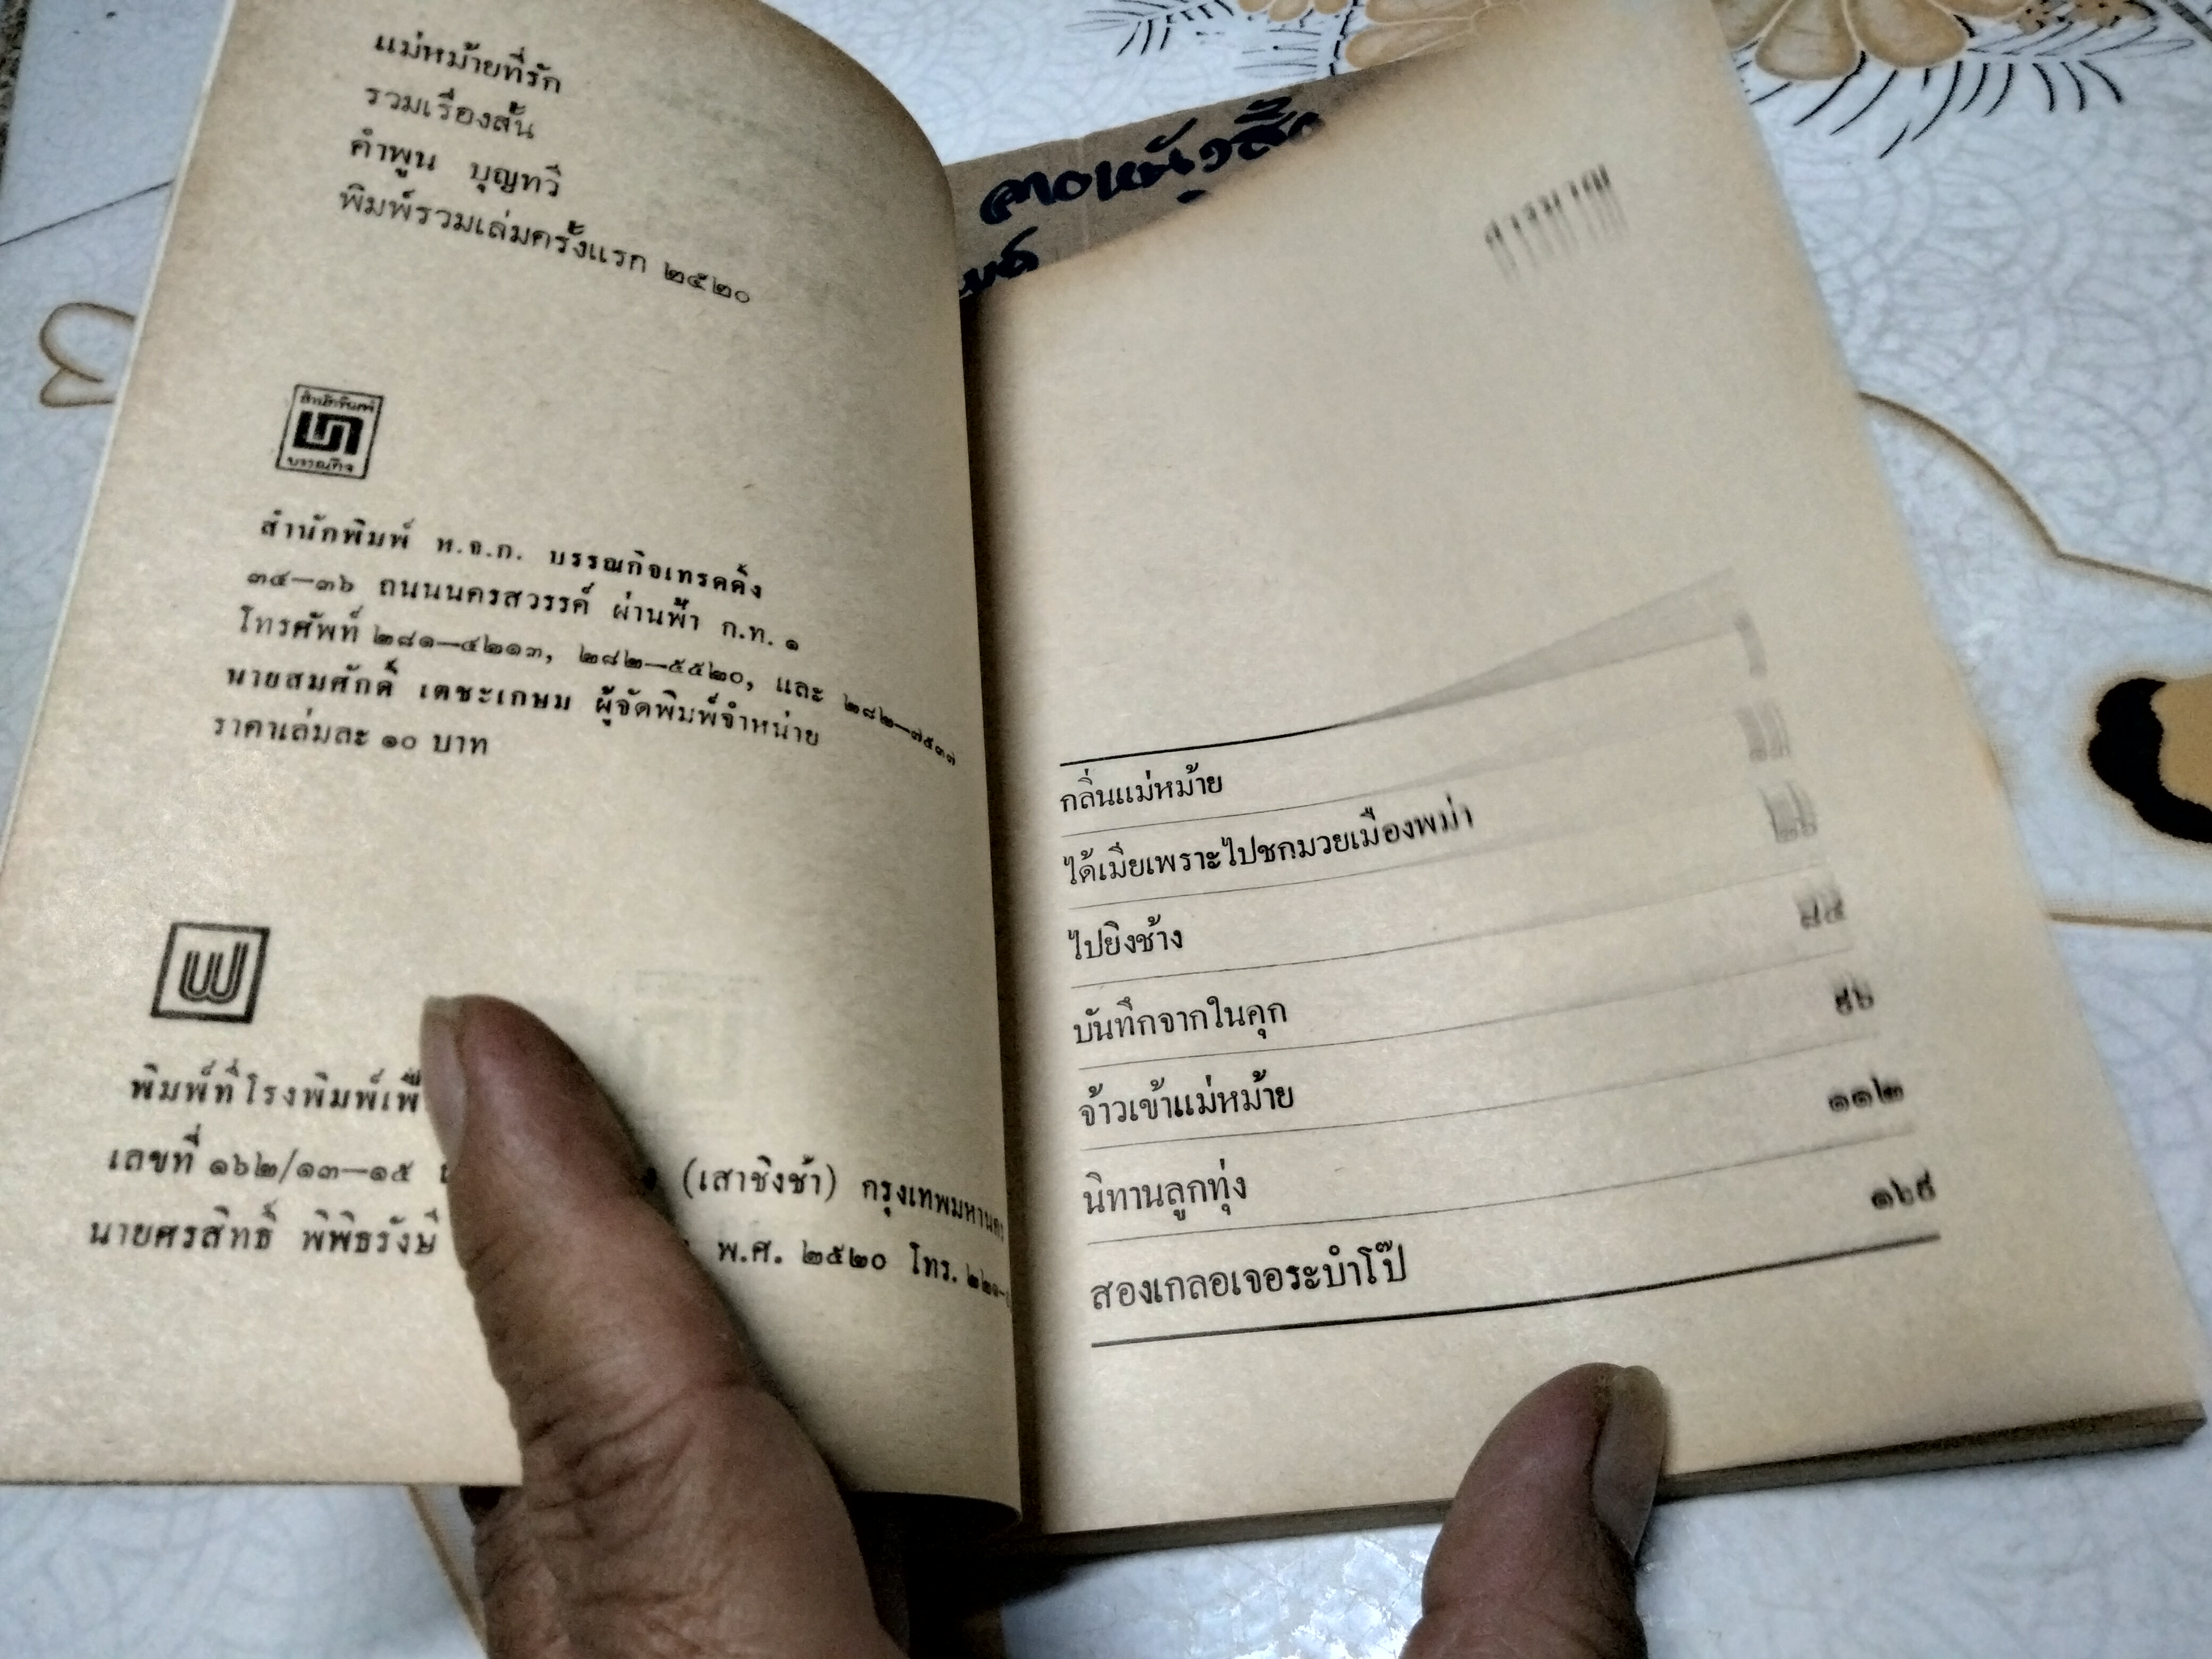 แม่หม้ายที่รัก
รวมเรื่องสั้น
คำพูน บุญทวี
พิมพ์รวมเล่มครั้งแรก ๒๕๒๐
สำนักพิมพ์
บรรณกิจ
สำนักพิมพ์ ห.จ.ก. บรรณกิจเทรดดิ้ง
๓๔—๓๖ ถนนนครสวรรค์ ผ่านฟ้า ก.ท. ๑
โทรศัพท์ ๒๘๑—๔๒๑๓, ๒๘๒—๕๕๒๐, และ ๒๘๒—๗๕๓๗
นายสมศักดิ์ เตชะเกษม ผู้จัดพิมพ์จำหน่าย
ราคาเล่มละ ๑๐ บาท
พิมพ์ที่โรงพิมพ์
เลขที่ ๑๖๒/๑๓—๑๕ (เสาชิงช้า) กรุงเทพมหานคร
นายศรสิทธิ์ พิพิธรังษี พ.ศ. ๒๕๒๐ โทร.
กลิ่นแม่หม้าย
ได้เมียเพราะไปชกมวยเมืองพม่า
ไปยิงช้าง
บันทึกจากในคุก
จ้าวเข้าแม่หม้าย ๙๖
นิทานลูกทุ่ง ๑๑๒
สองเกลอเจอระบำโป๊ ๑๖๙